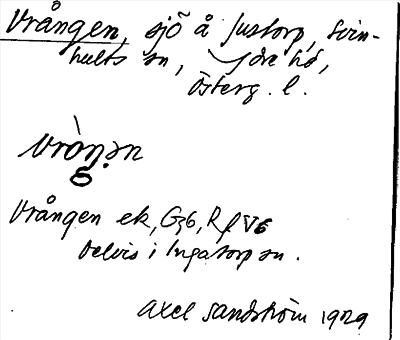 Vrången, sjö å Justorp, Svin-
hults sn, Ydre hd,
Österg. l.
vròŋən
Vrången ek, G36, Rf V6
Delvis i Ingatorp sn.
Axel Sandström 1929